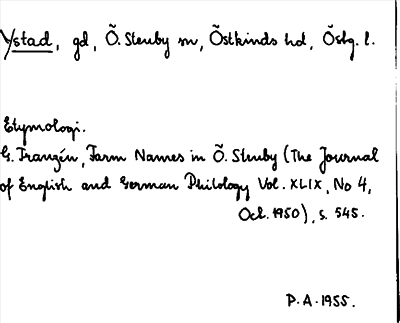 Ystad, gd, Ö. Stenby sn, Östkinds hd, Östg. l.
Etymologi.
G. Franzén, Farm Names in Ö. Stenby (The Journal
of English and German Philology Vol. XLIX, No 4,
Oct. 1950), s. 545.
P.A. 1955.